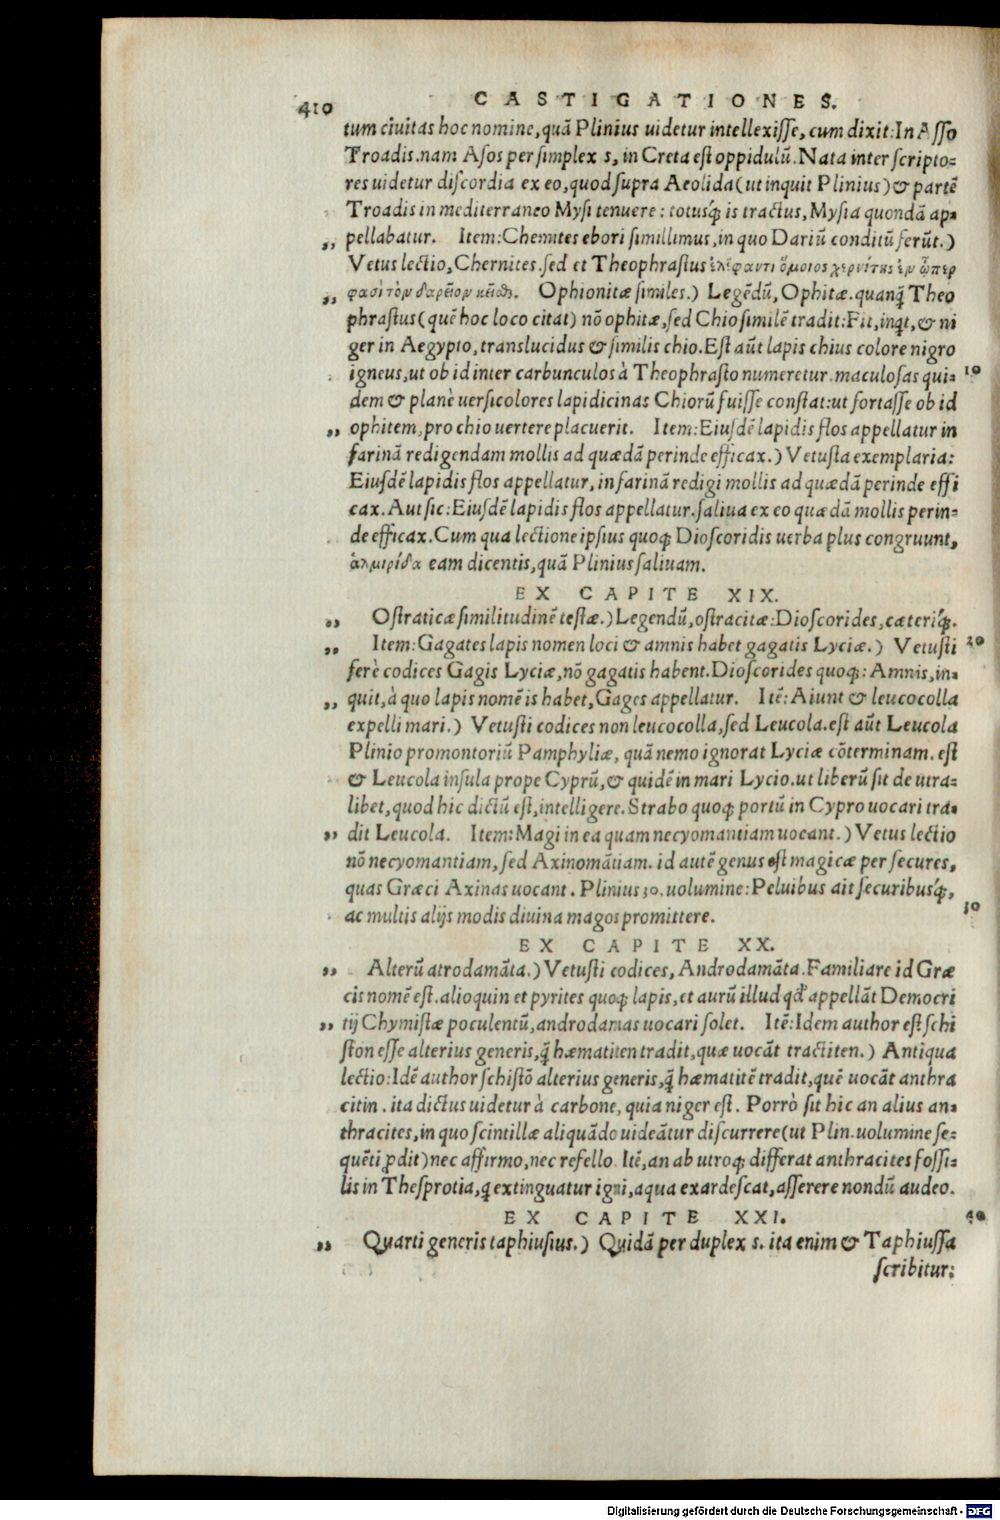 410 CASTIGATIONES.
tum ciuitas hoc nomine, quā Plinius uidetur intellexiſſe, cum dixit: In Aſſo
Troadis. nam Aſos per ſimplex s, in Creta eſt oppidulū. Nata inter ſcripto=
res uidetur diſcordia ex eo, quod ſupra Aeolida (ut inquit Plinius) & partē
Troadis in mediterraneo Myſi tenuere: totusq́; is tractus, Myſia quondā ap=
,, pellabatur. Item: Chemites ebori ſimillimus, in quo Dariū conditū ferūt.)
Vetus lectio, Chernites. ſed et Theophraſtus ἐλέφαντι ὅμοιος χερνίτης ἐν ᾧπερ
,, φασὶ τὸν δαρεῖον κεῖσθ. Ophionitæ ſimiles.) Legēdū, Ophitæ. quanq̄ Theo
phraſtus (quē hoc loco citat) nō ophitæ, ſed Chio ſimilē tradit: Fit, inqt, & ni
ger in Aegypto, translucidus & ſimilis chio. Eſt aūt lapis chius colore nigro
igneus, ut ob id inter carbunculos à Theophraſto numeretur. maculoſas qui= 10
dem & planè uerſicolores lapidicinas Chiorū fuiſſe conſtat: ut fortaſſe ob id
,, ophitem, pro chio uertere placuerit. Item: Eiuſdē lapidis flos appellatur in
farinā redigendam mollis ad quædā perinde efficax.) Vetuſta exemplaria:
Eiuſdē lapidis flos appellatur, in farinā redigi mollis ad quædā perinde effi
cax. Aut ſic: Eiuſdē lapidis flos appellatur. ſaliua ex eo quædā mollis perin=
de efficax. Cum qua lectione ipſius quoq; Dioſcoridis uerba plus congruunt,
ἁλμυρίδα eam dicentis, quā Plinius ſaliuam.
EX CAPITE XIX.
,, Oſtraticæ ſimilitudinē teſtæ.) Legendū, oſtracitæ: Dioſcorides, cæteriq́;.
,, Item: Gagates lapis nomen loci & amnis habet gagatis Lyciæ.) Vetuſti 20
ferè codices Gagis Lyciæ, nō gagatis habent. Dioſcorides quoq;: Amnis, in=
,, quit, à quo lapis nomē is habet, Gages appellatur. Itē: Aiunt & leucocolla
expelli mari.) Vetuſti codices non leucocolla, ſed Leucola. eſt aūt Leucola
Plinio promontoriū Pamphyliæ, quā nemo ignorat Lyciæ cōterminam. eſt
& Leucola inſula prope Cyprū, & quidē in mari Lycio. ut liberū ſit de utra=
libet, quod hic dictū eſt, intelligere. Strabo quoq; portū in Cypro uocari tra=
,, dit Leucola. Item: Magi in ea quam necyomantiam uocant.) Vetus lectio
nō necyomantiam, ſed Axinomātiam. id autē genus eſt magicæ per ſecures,
quas Græci Axinas uocant. Plinius 30. uolumine: Peluibus ait ſecuribusq́;,
ac multis alijs modis diuina magos promittere. 30
EX CAPITE XX.
,, Alterū atrodamāta.) Vetuſti codices, Androdamāta. Familiare id Græ
cis nomē eſt. alioquin et pyrites quoq; lapis, et aurū illud qd' appellāt Democri
,, tij Chymiſtæ poculentū, androdamas uocari ſolet. Itē: Idem author eſt ſchi
ſton eſſe alterius generis, q̄ hæmatiten tradit, quæ uocāt tractiten.) Antiqua
lectio: Idē author ſchiſtō alterius generis, q̄ hæmatitē tradit, quē uocāt anthra
citin. ita dictus uidetur à carbone, quia niger eſt. Porrò ſit hic an alius an=
thracites, in quo ſcintillæ aliquādo uideātur diſcurrere (ut Plin. uolumine ſe=
quēti ꝓdit) nec affirmo, nec refello. Itē, an ab utroq; differat anthracites foſſi=
lis in Theſprotia, q extinguatur igni, aqua exardeſcat, aſſerere nondū audeo.
EX CAPITE XXI. 40
,, Quarti generis taphiuſius.) Quidā per duplex s. ita enim & Taphiuſſa
ſcribitur:
Digitalisierung gefördert durch die Deutsche Forschungsgemeinschaft - DFG